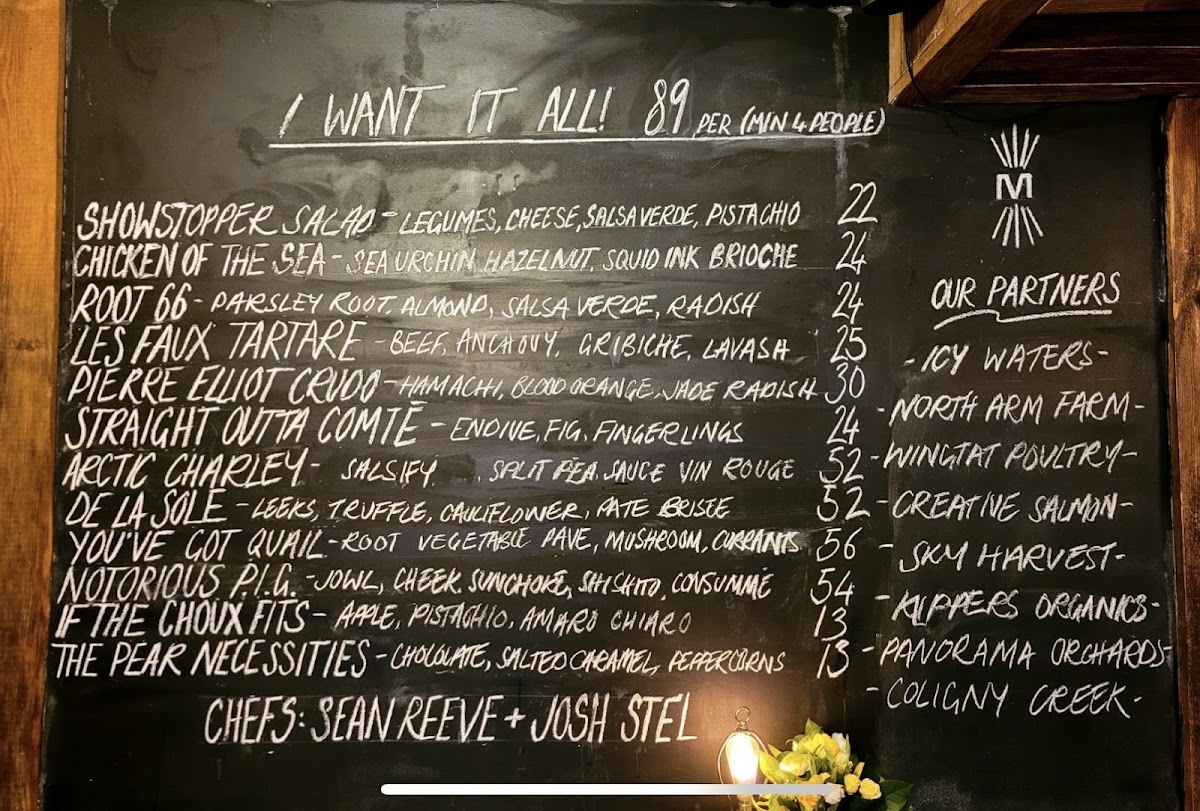 I WANT IT ALL! 89 PER (MIN 4 PEOPLE)
SHOWSTOPPER SALAD - LEGUMES, CHEESE, SALSA VERDE, PISTACHIO 22
CHICKEN OF THE SEA - SEA URCHIN, HAZELNUT, SQUID INK BRIOCHE 24
ROOT 66 - PARSLEY ROOT, ALMOND, SALSA VERDE, RADISH 24
LES FAUX TARTARE - BEEF, ANCHOVY, GRIBICHE, LAVASH 25
PIERRE ELLIOT CRUDO - HAMACHI, BLOOD ORANGE, JADE RADISH 30
STRAIGHT OUTTA COMTÉ - ENDIVE, FIG, FINGERLINGS 24
ARCTIC CHARLEY - SALSIFY, SPLIT PEA, SAUCE VIN ROUGE 52
DE LA SOLE - LEEKS, TRUFFLE, CAULIFLOWER, PATE BRISEE 52
YOU'VE GOT QUAIL - ROOT VEGETABLE PAVE, MUSHROOM, CURRANTS 56
NOTORIOUS P.I.G. - JOWL, CHEEK, SUNCHOKE, SHISHITO, CONSUMMÉ 54
IF THE CHOUX FITS - APPLE, PISTACHIO, AMARO CHIARO 13
THE PEAR NECESSITIES - CHOCOLATE, SALTED CARAMEL, PEPPERCORNS 13
CHEFS: SEAN REEVE + JOSH STEL
M
OUR PARTNERS
- ICY WATERS -
- NORTH ARM FARM -
- WINGTAT POULTRY -
- CREATIVE SALMON -
- SKY HARVEST -
- KLIPPERS ORGANICS -
- PANORAMA ORCHARDS -
- COLIGNY CREEK -